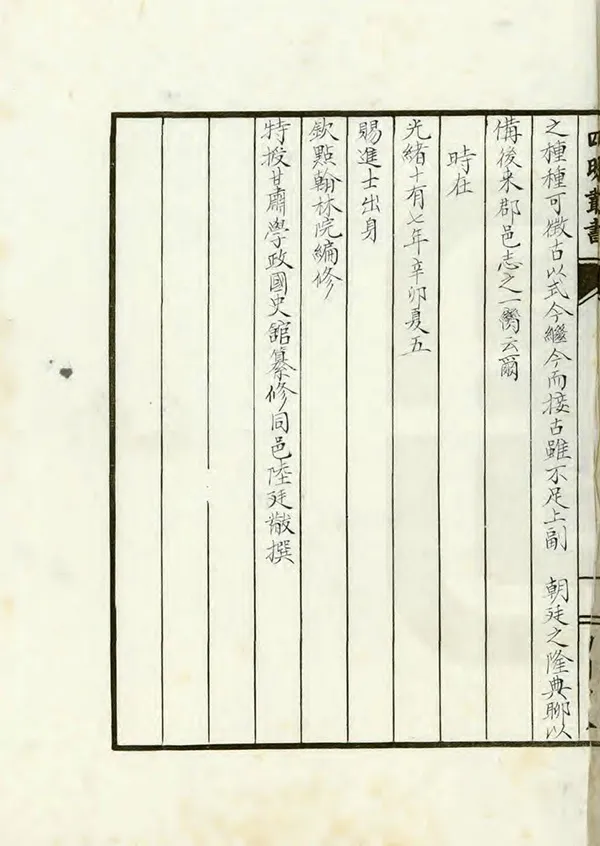 四明叢書
之種種可徵古以式今繼今而接古雖不足上副 朝廷之隆典聊以
備後来郡邑志之一臠云爾
時在
光緒十有七年辛卯夏五
賜進士出身
欽點翰林院編修
特授甘肅學政國史館纂修同邑陸廷黻撰